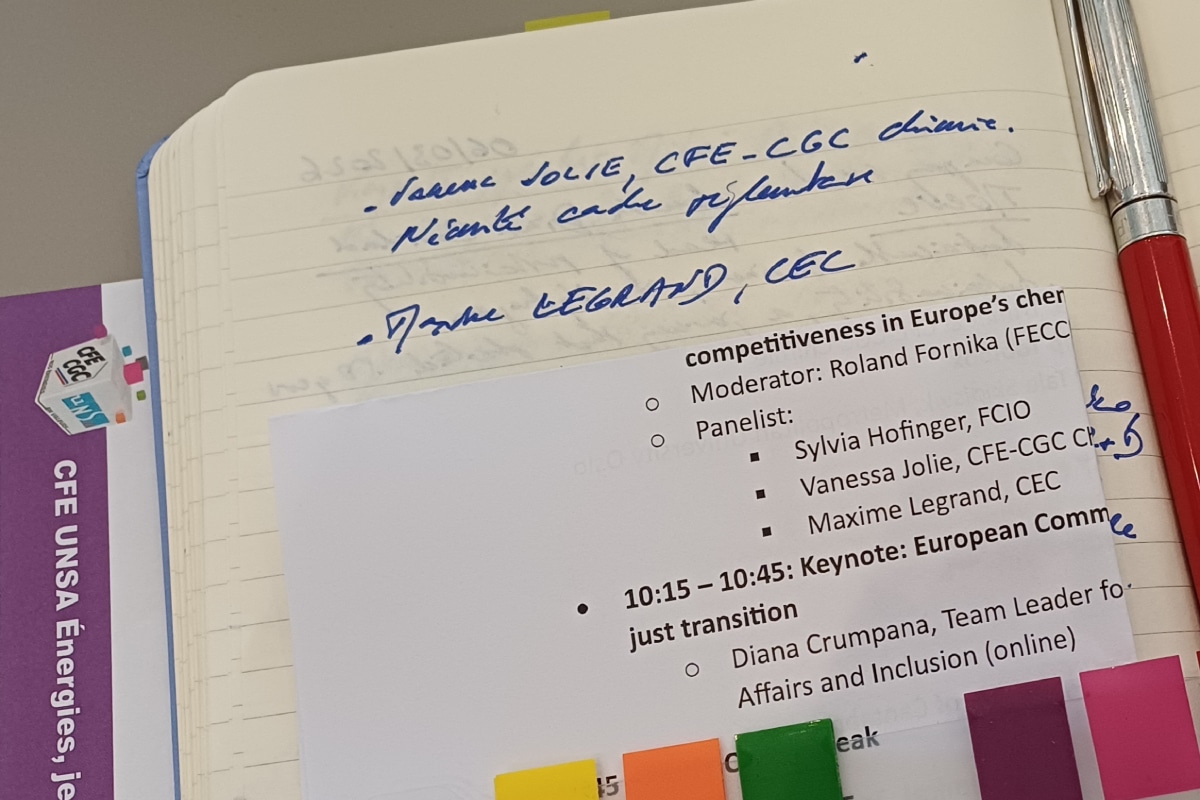 - Vanessa JOLIE, CFE-CGC chimie.
cadre réglementaire
- Maxime LEGRAND, CEC
competitiveness in Europe's chem
Moderator: Roland Fornika (FECC
Panelist:
Sylvia Hofinger, FCIO
Vanessa Jolie, CFE-CGC Ch
Maxime Legrand, CEC
10:15 – 10:45: Keynote: European Comm
just transition
Diana Crumpana, Team Leader fo
Affairs and Inclusion (online)
45
eak
06/03/2026
CFE
CGC
UNS
CFE UNSA Énergies, je